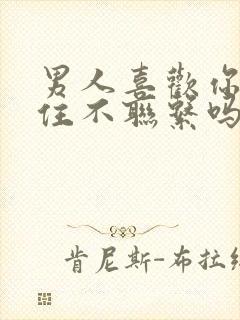 男人喜歡你
住不聯繫吗
肯尼斯-布拉